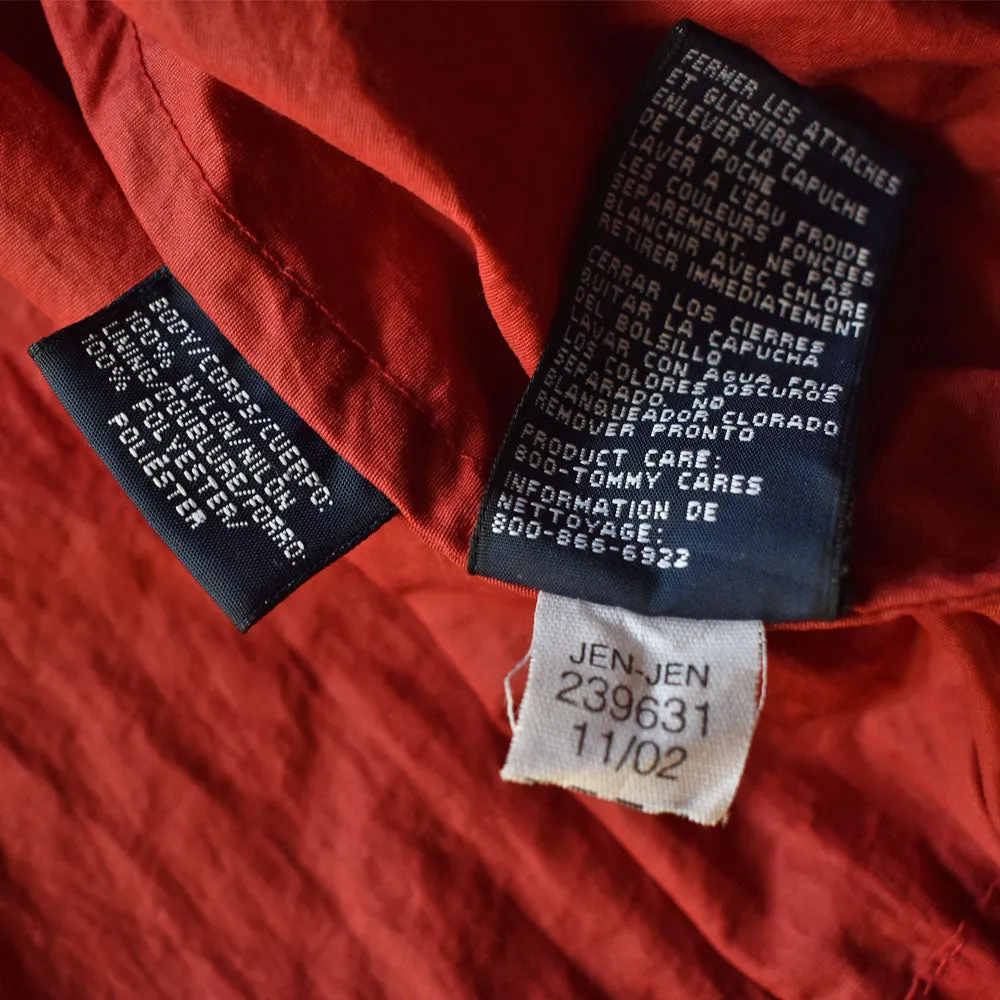 BODY/CORPS/CUERPO:
100% NYLON/NILON
LINING/DOUBLURE/FORRO:
100% POLYESTER/
POLIESTER
FERMER LES ATTACHES
ET GLISSIERES
ENLEVER LA CAPUCHE
DE LA POCHE
LAVER A L'EAU FROIDE
LES COULEURS FONCEES
SEPAREMENT. NE PAS
BLANCHIR AVEC CHLORE
RETIRER IMMEDIATEMENT
CERRAR LOS CIERRES
QUITAR LA CAPUCHA
DEL BOLSILLO
LAVAR CON AGUA FRIA
LOS COLORES OSCUROS
SEPARADO. NO
BLANQUEADOR CLORADO
REMOVER PRONTO
PRODUCT CARE:
800-TOMMY CARES
INFORMATION DE
NETTOYAGE:
800-866-6922
JEN-JEN
239631
11/02